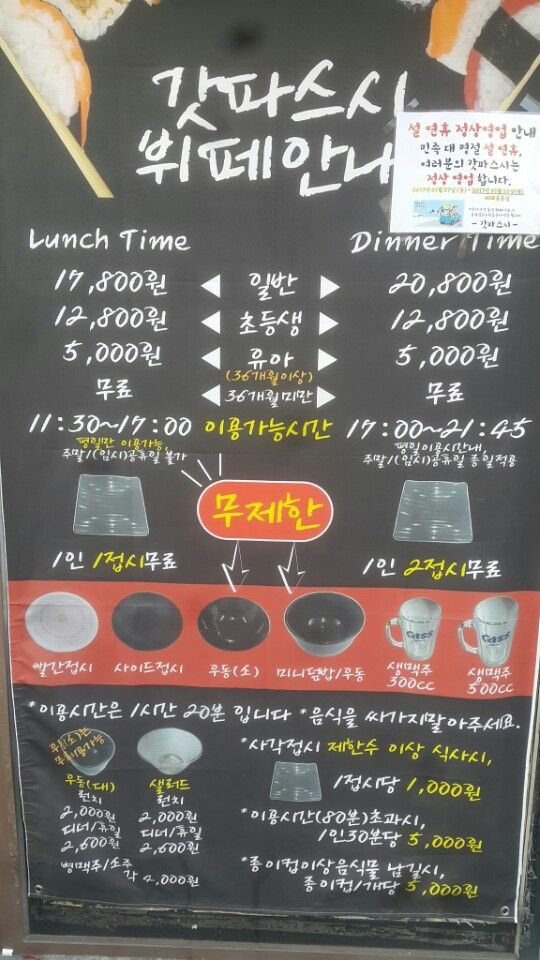 갓파스시
뷔페안내
설 연휴 정상영업 안내
민족 대 명절 설 연휴,
여러분의 갓파스시는
정상 영업 합니다.
- 갓파스시 -
Lunch Time
Dinner Time
17,800원 ◀ 일반 ▶ 20,800원
12,800원 ◀ 초등생 ▶ 12,800원
5,000원 ◀ 유아 ▶ 5,000원
(36개월이상)
무료 ◀ 36개월미만 ▶ 무료
11:30~17:00 이용가능시간 17:00~21:45
평일만 이용가능,
주말/(임시)공휴일 불가
평일이용시간내,
주말/(임시)공휴일 종일적용
무제한
1인 1접시무료
1인 2접시무료
빨간접시 사이드접시 우동(소) 미니덮밥/우동 생맥주 300cc 생맥주 500cc
Cass
Cass
*이용시간은 1시간 20분 입니다 *음식을 싸가지말아주세요.
*사각접시 제한수 이상 식사시,
1접시당 1,000원
우동(대)
런치
2,000원
디너/휴일
2,600원
샐러드
런치
2,000원
디너/휴일
2,600원
병맥주/소주
각 2,000원
*이용시간(80분)초과시,
1인30분당 5,000원
*종이컵이상음식물 남길시,
종이컵/개당 5,000원